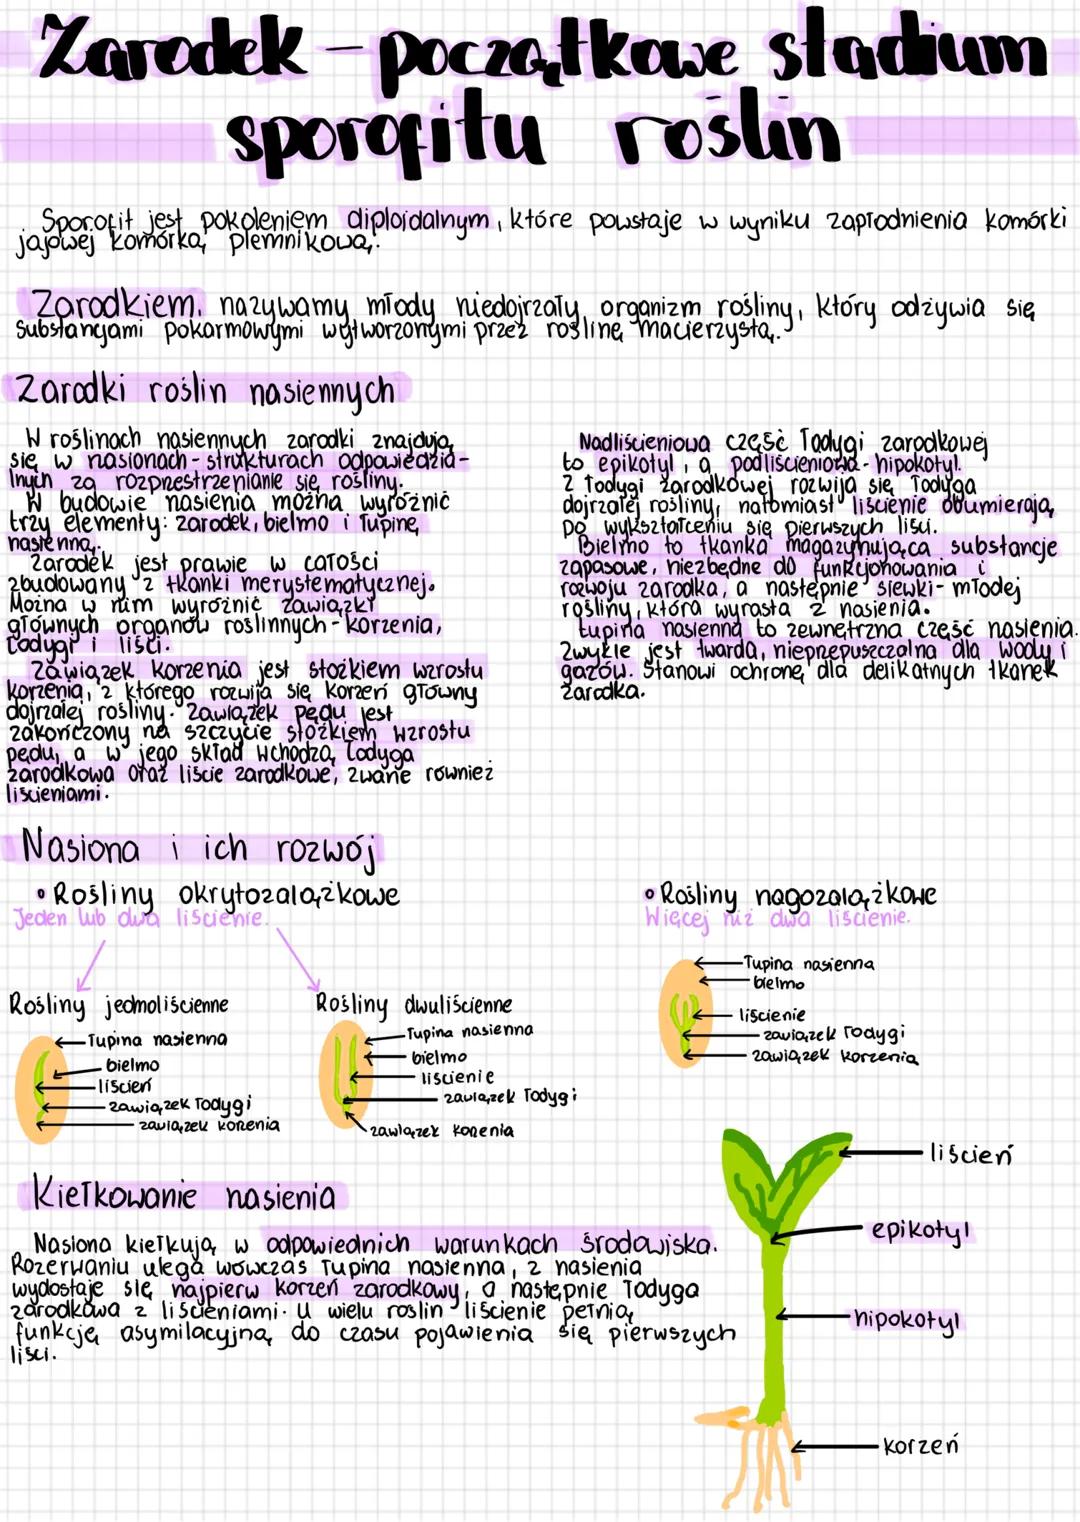 Zarodek - początkowe stadium
sporofitu roślin
Sporofit jest pokoleniem diploidalnym, które powstaje w wyniku zapłodnienia komórki
jajowej komórką plemnikową.
Zarodkiem nazywamy młody niedojrzały organizm rośliny, który odżywia się
substancjami pokarmowymi wytworzonymi przez roślinę macierzystą.
Zarodki roślin nasiennych
W roślinach nasiennych zarodki znajdują
się w nasionach - strukturach odpowiedzia-
lnych za rozprzestrzenianie się rośliny.
W budowie nasienia można wyróżnić
trzy elementy: zarodek, bielmo i łupinę
nasienną.
Zarodek jest prawie w całości
zbudowany z tkanki merystematycznej.
Można w nim wyróżnić zawiązki
głównych organów roślinnych - korzenia,
łodygi i liści.
Zawiązek korzenia jest stożkiem wzrostu
korzenia, z którego rozwija się korzeń główny
dojrzałej rośliny. Zawiązek pędu jest
zakończony na szczycie stożkiem wzrostu
pędu, a w jego skład wchodzą łodyga
zarodkowa oraz liście zarodkowe, zwane również
liścieniami.
Nadliścieniowa część łodygi zarodkowej
to epikotyl, a podliścieniowa - hipokotyl.
Z łodygi zarodkowej rozwija się łodyga
dojrzałej rośliny, natomiast liścienie obumierają
po wykształceniu się pierwszych liści.
Bielmo to tkanka magazynująca substancje
zapasowe, niezbędne do funkcjonowania i
rozwoju zarodka, a następnie siewki - młodej
rośliny, która wyrasta z nasienia.
Łupina nasienna to zewnętrzna część nasienia.
Zwykle jest twarda, nieprzepuszczalna dla wody i
gazów. Stanowi ochronę dla delikatnych tkanek
zarodka.
Nasiona i ich rozwój
• Rośliny okrytozalążkowe
Jeden lub dwa liścienie.
• Rośliny nagozalążkowe
Więcej niż dwa liścienie.
Rośliny jednoliścienne
łupina nasienna
bielmo
liścień
zawiązek łodygi
zawiązek korzenia
Rośliny dwuliścienne
łupina nasienna
bielmo
liścienie
zawiązek łodygi
zawiązek korzenia
łupina nasienna
bielmo
liścienie
zawiązek łodygi
zawiązek korzenia
Kiełkowanie nasienia
Nasiona kiełkują w odpowiednich warunkach środowiska.
Rozerwaniu ulega wówczas łupina nasienna, z nasienia
wydostaje się najpierw korzeń zarodkowy, a następnie łodyga
zarodkowa z liścieniami. U wielu roślin liścienie pełnią
funkcję asymilacyjną do czasu pojawienia się pierwszych
liści.
liścień
epikotyl
hipokotyl
korzeń